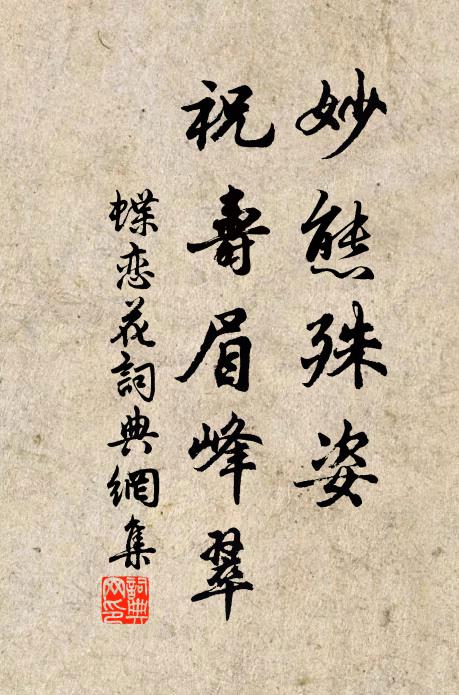 妙態殊姿
祝壽眉峰翠
蝶恋花詞典網集
詞典网印